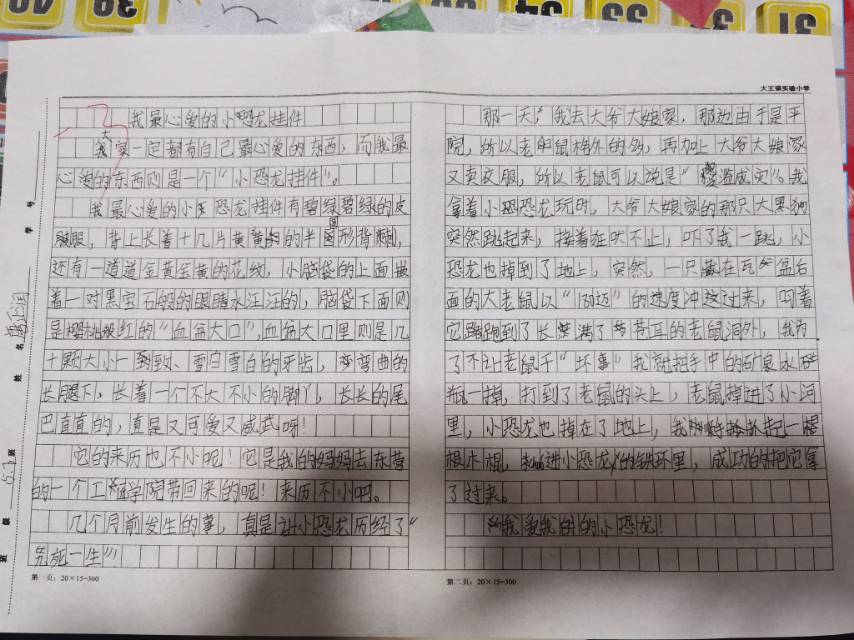 大王镇实验小学
我最心爱的小恐龙挂件
大家一定都有自己最心爱的东西，而我最
心爱的东西则是一个“小恐龙挂件”。
我最心爱的小恐龙挂件有碧绿碧绿的皮
肤，背上长着十几片黄黄的半圆形背刺，
还有一道道金黄金黄的花线，小脑袋的上面
着一对黑宝石般的眼睛水汪汪的，脑袋下面则
是红的“血盆大口”，血盆大口里则是几
十颗大小一致、雪白雪白的牙齿，弯曲的
长腿下，长着一个不大不小的脚丫，长长的尾
巴直直的，真是又可爱又威武呀！
它的来历也不小呢！它是我的妈妈去东营
的一个工学院带回来的呢！来历不小吧。
几个月前发生的事，真是让小恐龙历经了“
九死一生”！
第一页：20×15=300
那一天，我去大爷大娘家，那边由于是平
院，所以老鼠格外的多，再加上大爷大娘家
又卖衣服，所以老鼠可以说是“泛滥成灾”。我
拿着小恐龙玩时，大爷大娘家的那只大黑狗
突然跳起来，接着狂吠不止，吓了我一跳，小
恐龙也掉到了地上，突然，一只藏在瓦盆后
面的大老鼠以“180迈”的速度冲这过来，叼着
它跑到了长满了苍耳的老鼠洞外，我为
了不让老鼠干“坏事”我就把手中的矿泉水
瓶一掷，打到了老鼠的头上，老鼠掉进了小河
里，小恐龙也掉在了地上，我起一根
木棍，进小恐龙的铁环里，成功的把它拿
了过来。
我爱我的小恐龙！
第二页：20×15=300
学 号
姓 名
班 级 5.3班